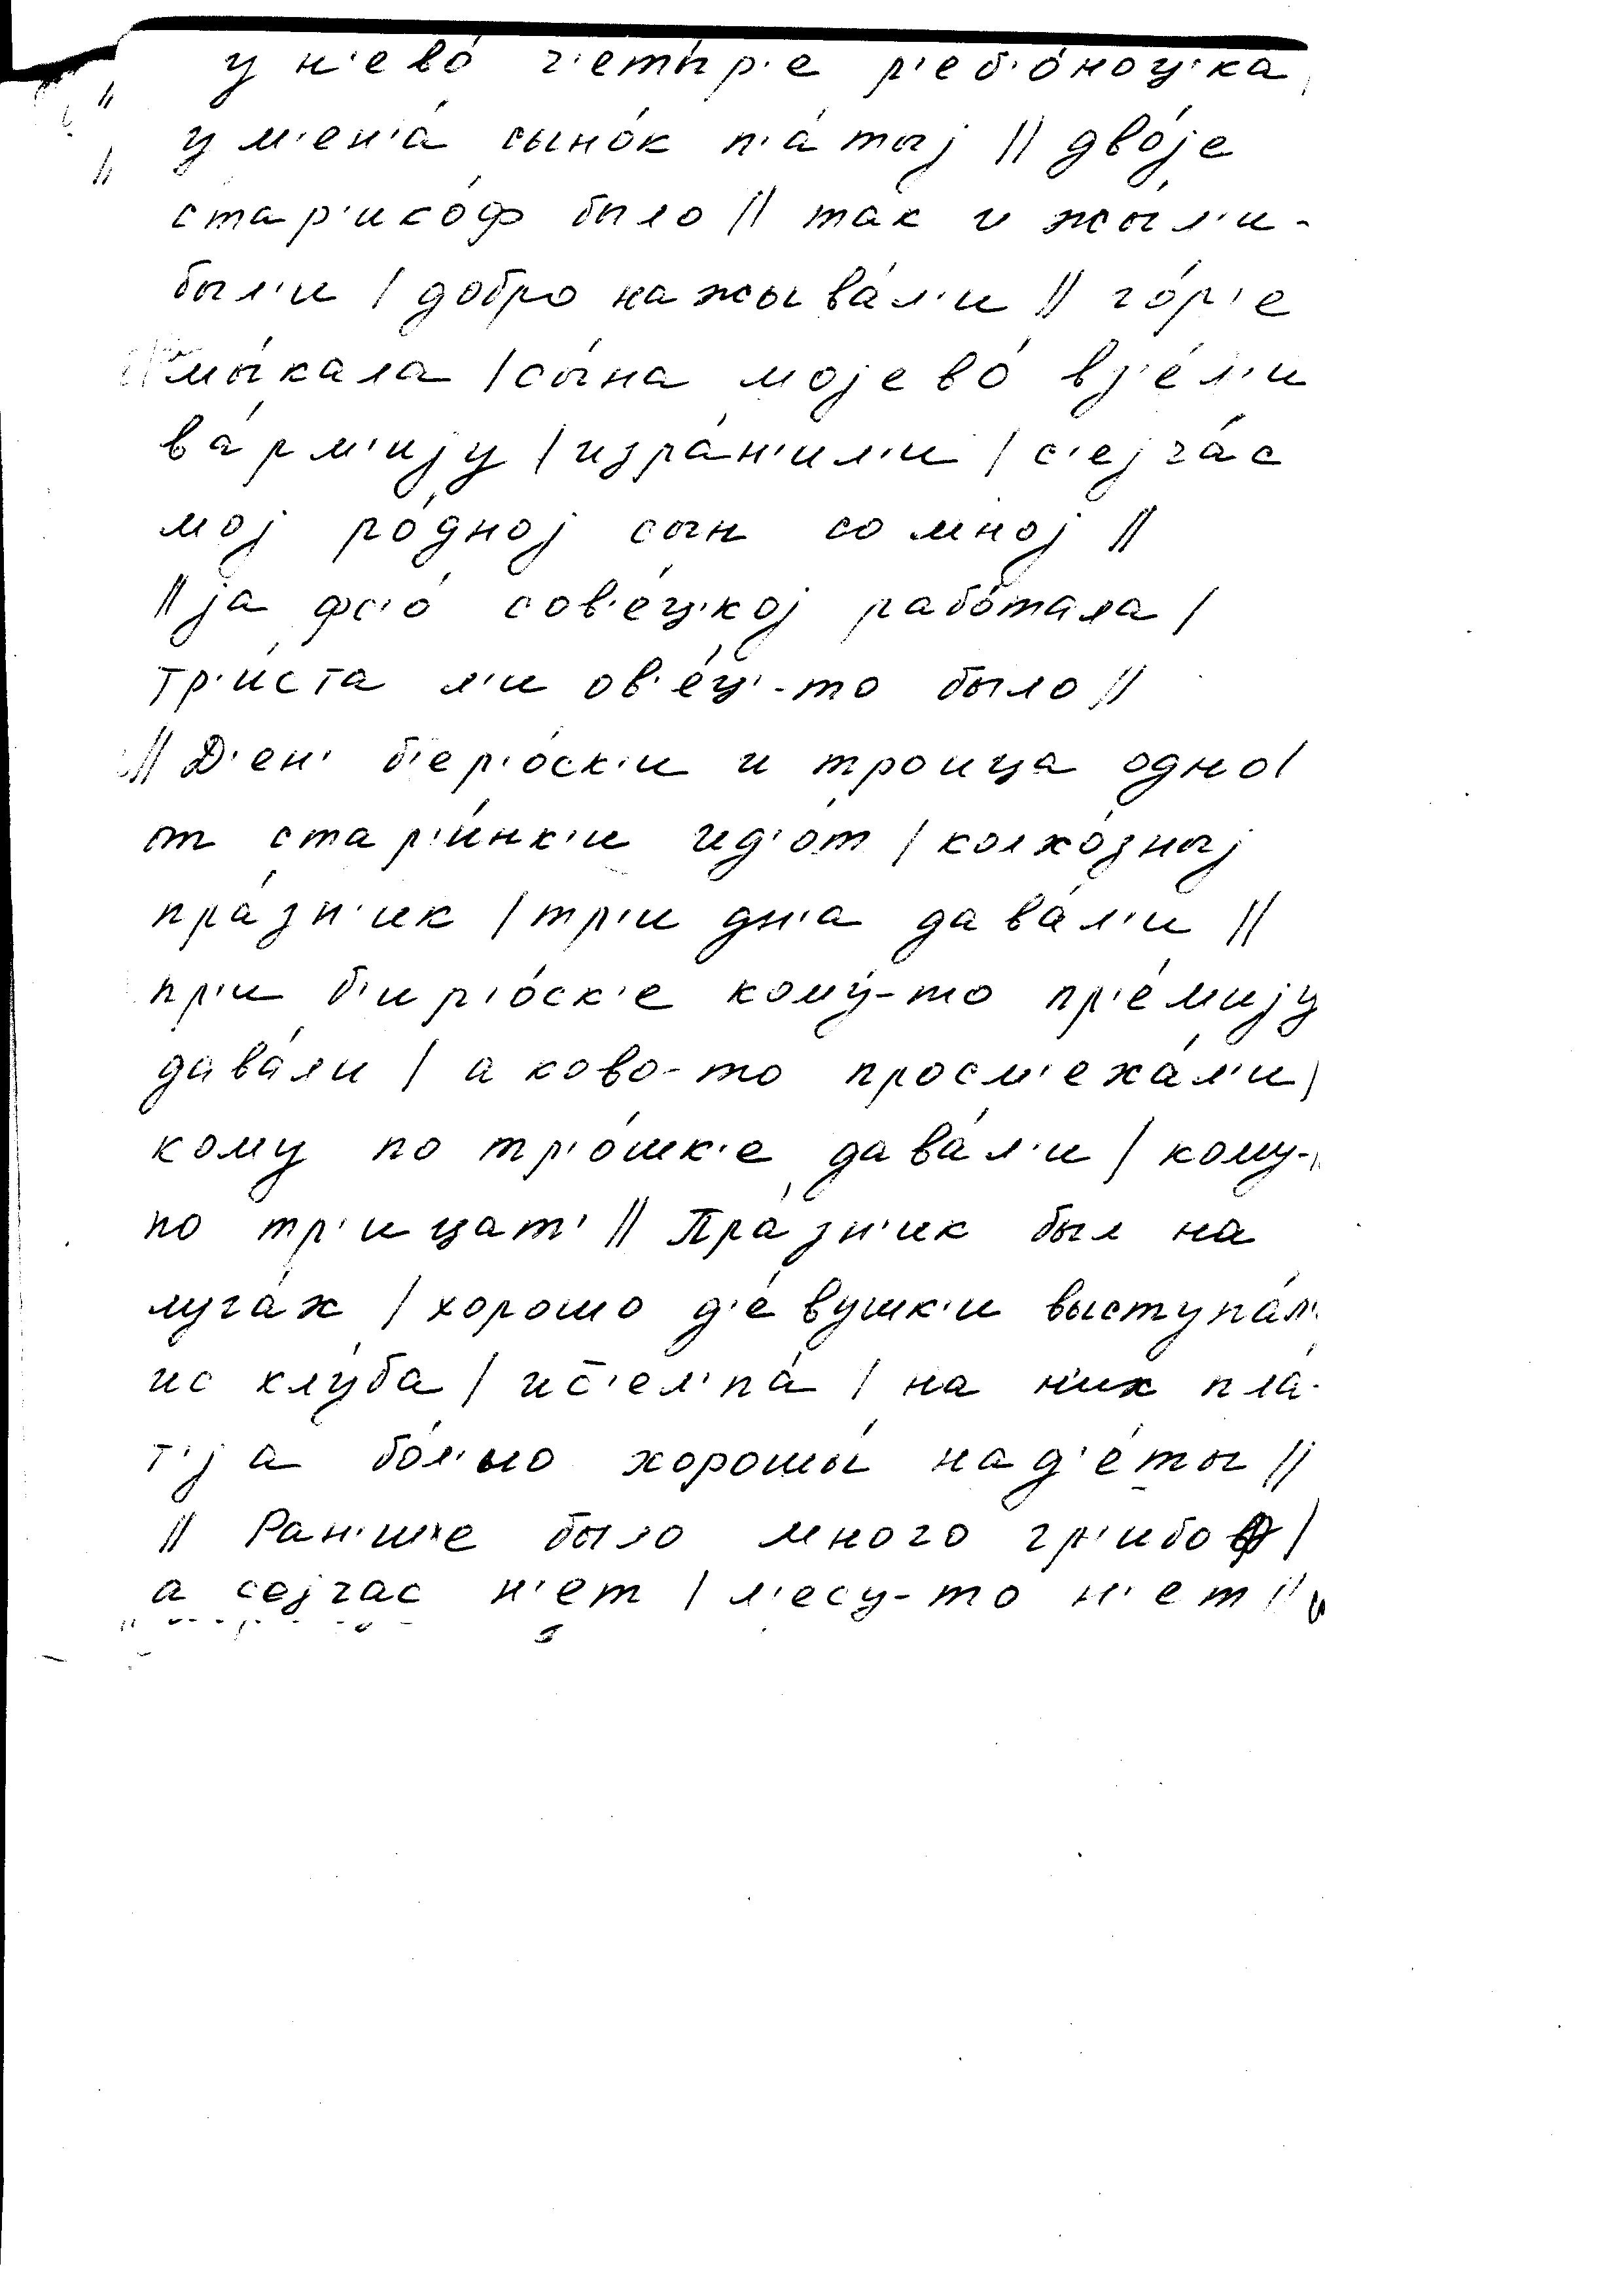 у н'ево́ ч'еты́р'е р'еб'о́ноц'ка
|| у м'ен'а́ сыно́к п'а́тыј || дво́је
|| стар'ико́ф было || так и жы́л'и-
был'и | добро нажыва́л'и || го́р'е
мы́кала | сы́на мојево́ вз'е́л'и
ва́рм'ију | изра́н'ил'и | с'ејча́с
мој ро́дној сын со мној ||
|| ја фс'о́ сов'е́ц'кој рабо́тала |
тр'и́ста л'и ов'е́ц'-то было ||
|| Д'ен' б'ер'о́ск'и и троица одно |
от стар'и́нк'и ид'о́т | колхо́зныј
пра́зн'ик | тр'и дн'а дава́л'и ||
пр'и б'ир'о́ск'е кому́-то пр'е́мију
дава́ли | а ково-то просм'еха́л'и |
кому по тр'о́шк'е дава́л'и | кому-
по тр'ицат' || Пра́зн'ик был на
луга́х | хорошо д'е́вушк'и выступа́л'
ис клу́ба | ис'ел'па́ | на н'их пла́-
т'ја бо́л'но хорошы́ над'е́ты ||
|| Ран'ш'е было много гр'ибоф |
а сејчас н'ет | л'есу-то н'ет ||